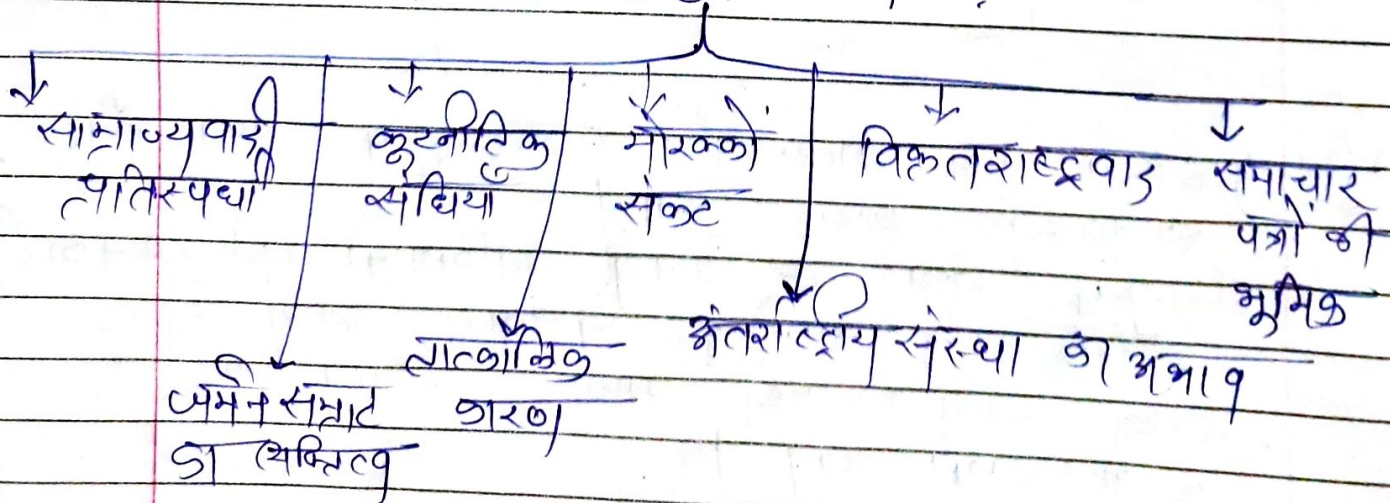 साम्राज्यवादी
प्रतिस्पर्धा
कूटनीतिक
संधियाँ
मोरक्को
संकट
विकृतराष्ट्रवाद
समाचार
पत्रों की
भूमिक
जर्मन सम्राट
का व्यक्तित्व
तात्कालिक
कारण
अंतर्राष्ट्रीय संस्था का अभाव